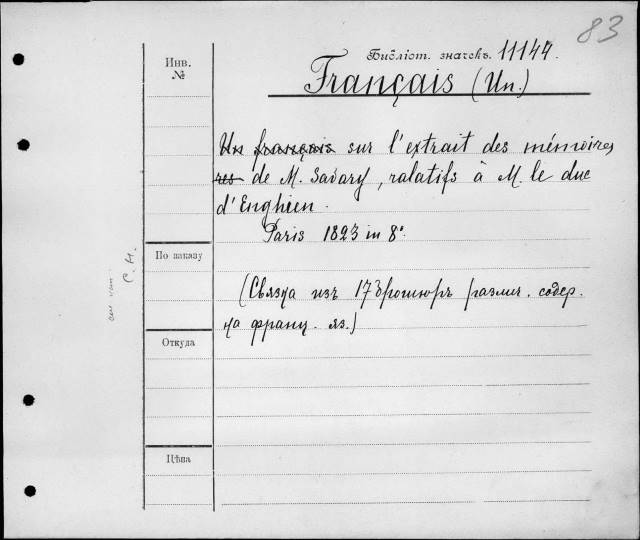 83
Библіот. значекъ. 11144.
Français (Un.)
Инв.
№
Un français sur l'extrait des mémoires
res de M. Savary, ralatifs à M. le duc
d'Enghien.
Paris 1823 in 8°
С. Н.
По заказу
(Связка изъ 17 брошюръ различ. содер.
на франц. яз.)
Откуда
Цѣна